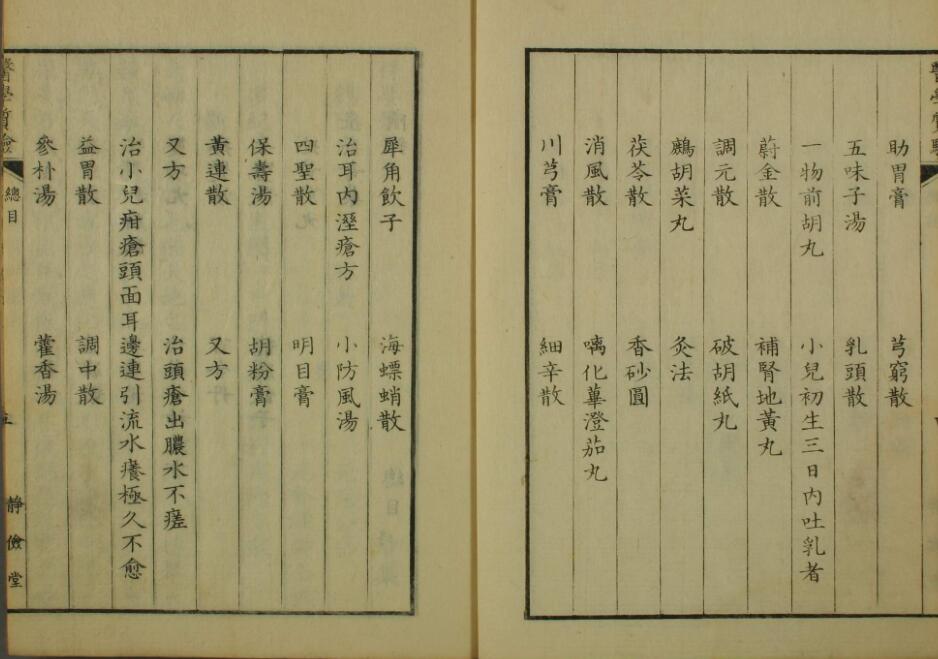 助胃膏 芎窮散
五味子湯 乳頭散
一物前胡丸 小兒初生三日內吐乳者
蔚金散 補腎地黃丸
調元散 破胡紙丸
鷓胡菜丸 灸法
茯苓散 香砂圓
消風散 嚼化蓽澄茄丸
川芎膏 細辛散
犀角飲子 海螵蛸散
治耳內溼瘡方 小防風湯
四聖散 明目膏
保壽湯 胡粉膏
黃連散 又方
又方 治頭瘡出膿水不瘥
治小兒疳瘡頭面耳邊連引流水癢極久不愈
益胃散 調中散
參朴湯 藿香湯
總目
五
靜儉堂